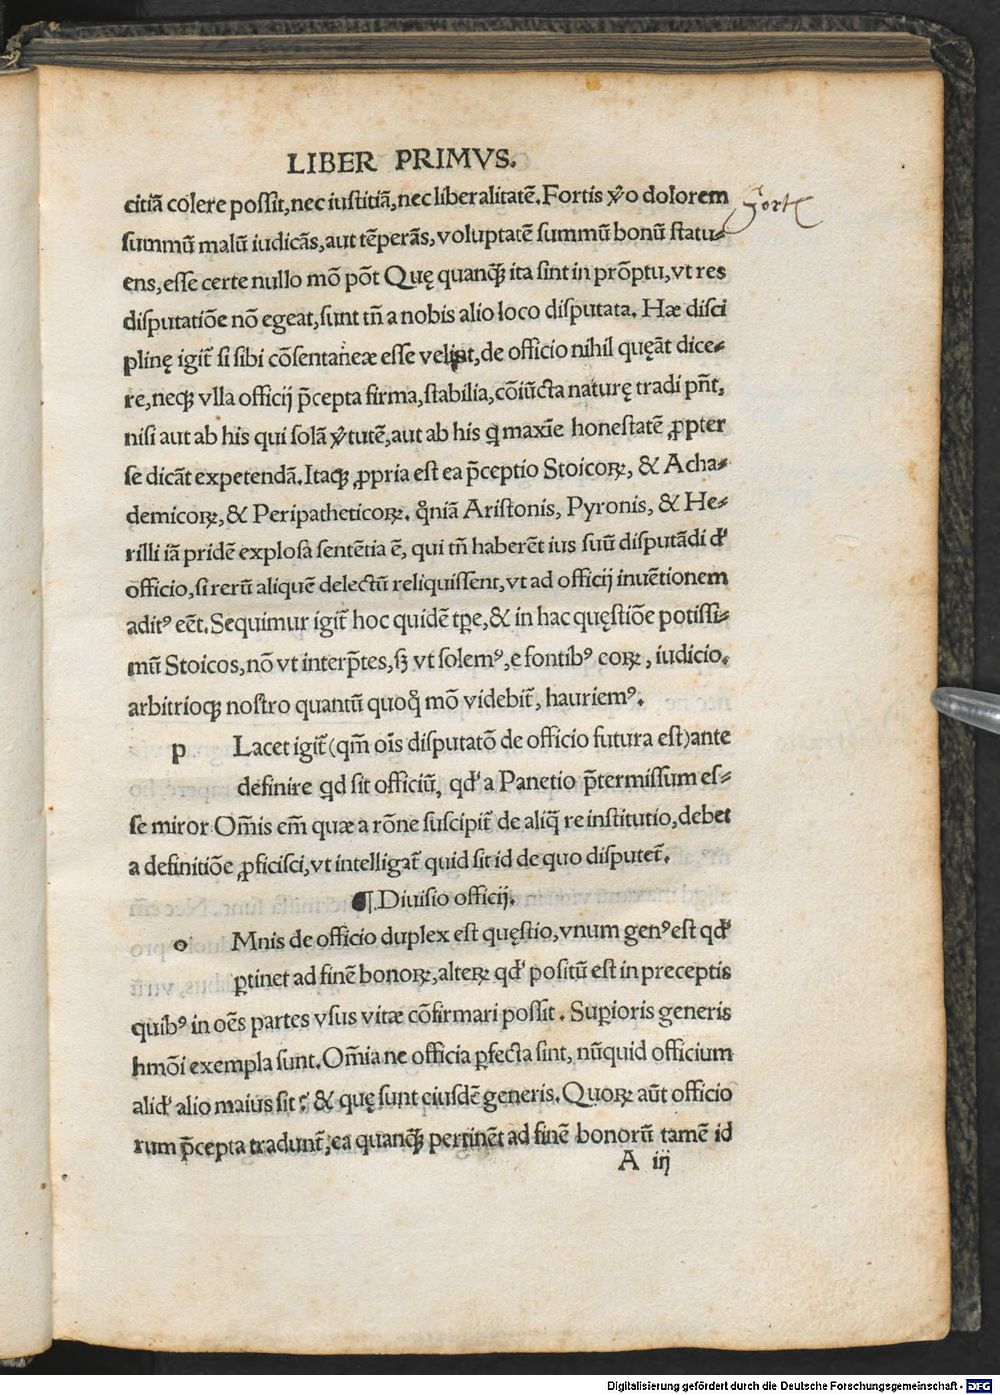 LIBER PRIMVS.
citiā colere possit, nec iustitiā, nec liberalitatē. Fortis v̄o dolorem
Forti
summū malū iudicās, aut tēperās, voluptatē summū bonū statu⸗
ens, esse certe nullo mō pōt Quę quanqȝ ita sint in prōptu, vt res
disputatiōe nō egeat, sunt tñ a nobis alio loco disputata. Hæ disci
plinę igit̃ si sibi cōsentaneæ esse velint, de officio nihil quęāt dice⸗
re, neqȝ vlla officij p̄cepta firma, stabilia, cōiūcta naturę tradi pñt,
nisi aut ab his qui solā v̄tutē, aut ab his q maxīe honestatē ꝓpter
se dicāt expetendā. Itaqȝ ꝓpria est ea p̄ceptio Stoicoꝝ, & Acha⸗
demicoꝝ, & Peripatheticoꝝ. qn̄iā Aristonis, Pyronis, & He⸗
rilli iā pridē explosa sentētia ē, qui tñ haberēt ius suū disputādi d'
officio, si rerū aliquē delectū reliquissent, vt ad officij inuētionem
aditꝰ eēt. Sequimur igit̃ hoc quidē tꝑe, & in hac quęstiōe potissi⸗
mū Stoicos, nō vt interp̄tes, sȝ vt solemꝰ, e fontibꝰ eoꝝ, iudicio,
arbitrioqȝ nostro quantū quoq̊ mō videbit̃, hauriemꝰ.
p Lacet igit̃ (qm̄ oīs disputatō de officio futura est) ante
definire qd sit officiū, qd' a Panetio p̄termissum es⸗
se miror Om̄is em̄ quæ a rōne suscipit̃ de aliq̄ re institutio, debet
a definitiōe ꝓficisci, vt intelligat̃ quid sit id de quo disputet̃.
¶ Diuisio officij.
o Mnis de officio duplex est quęstio, vnum genꝰ est qd'
ꝑtinet ad finē bonoꝝ, alteꝝ qd' positū est in preceptis
quibꝰ in oēs partes vsus vitæ cōfirmari possit. Suꝑioris generis
hmōi exempla sunt. Om̄ia ne officia ꝑfecta sint, nūquid officium
alid' alio maius sit? & quę sunt eiusdē generis. Quoꝝ aūt officio
rum p̄cepta tradunt̃, ea quanqȝ pertinēt ad finē bonorū tamē id
A iij
Digitalisierung gefördert durch die Deutsche Forschungsgemeinschaft - DFG